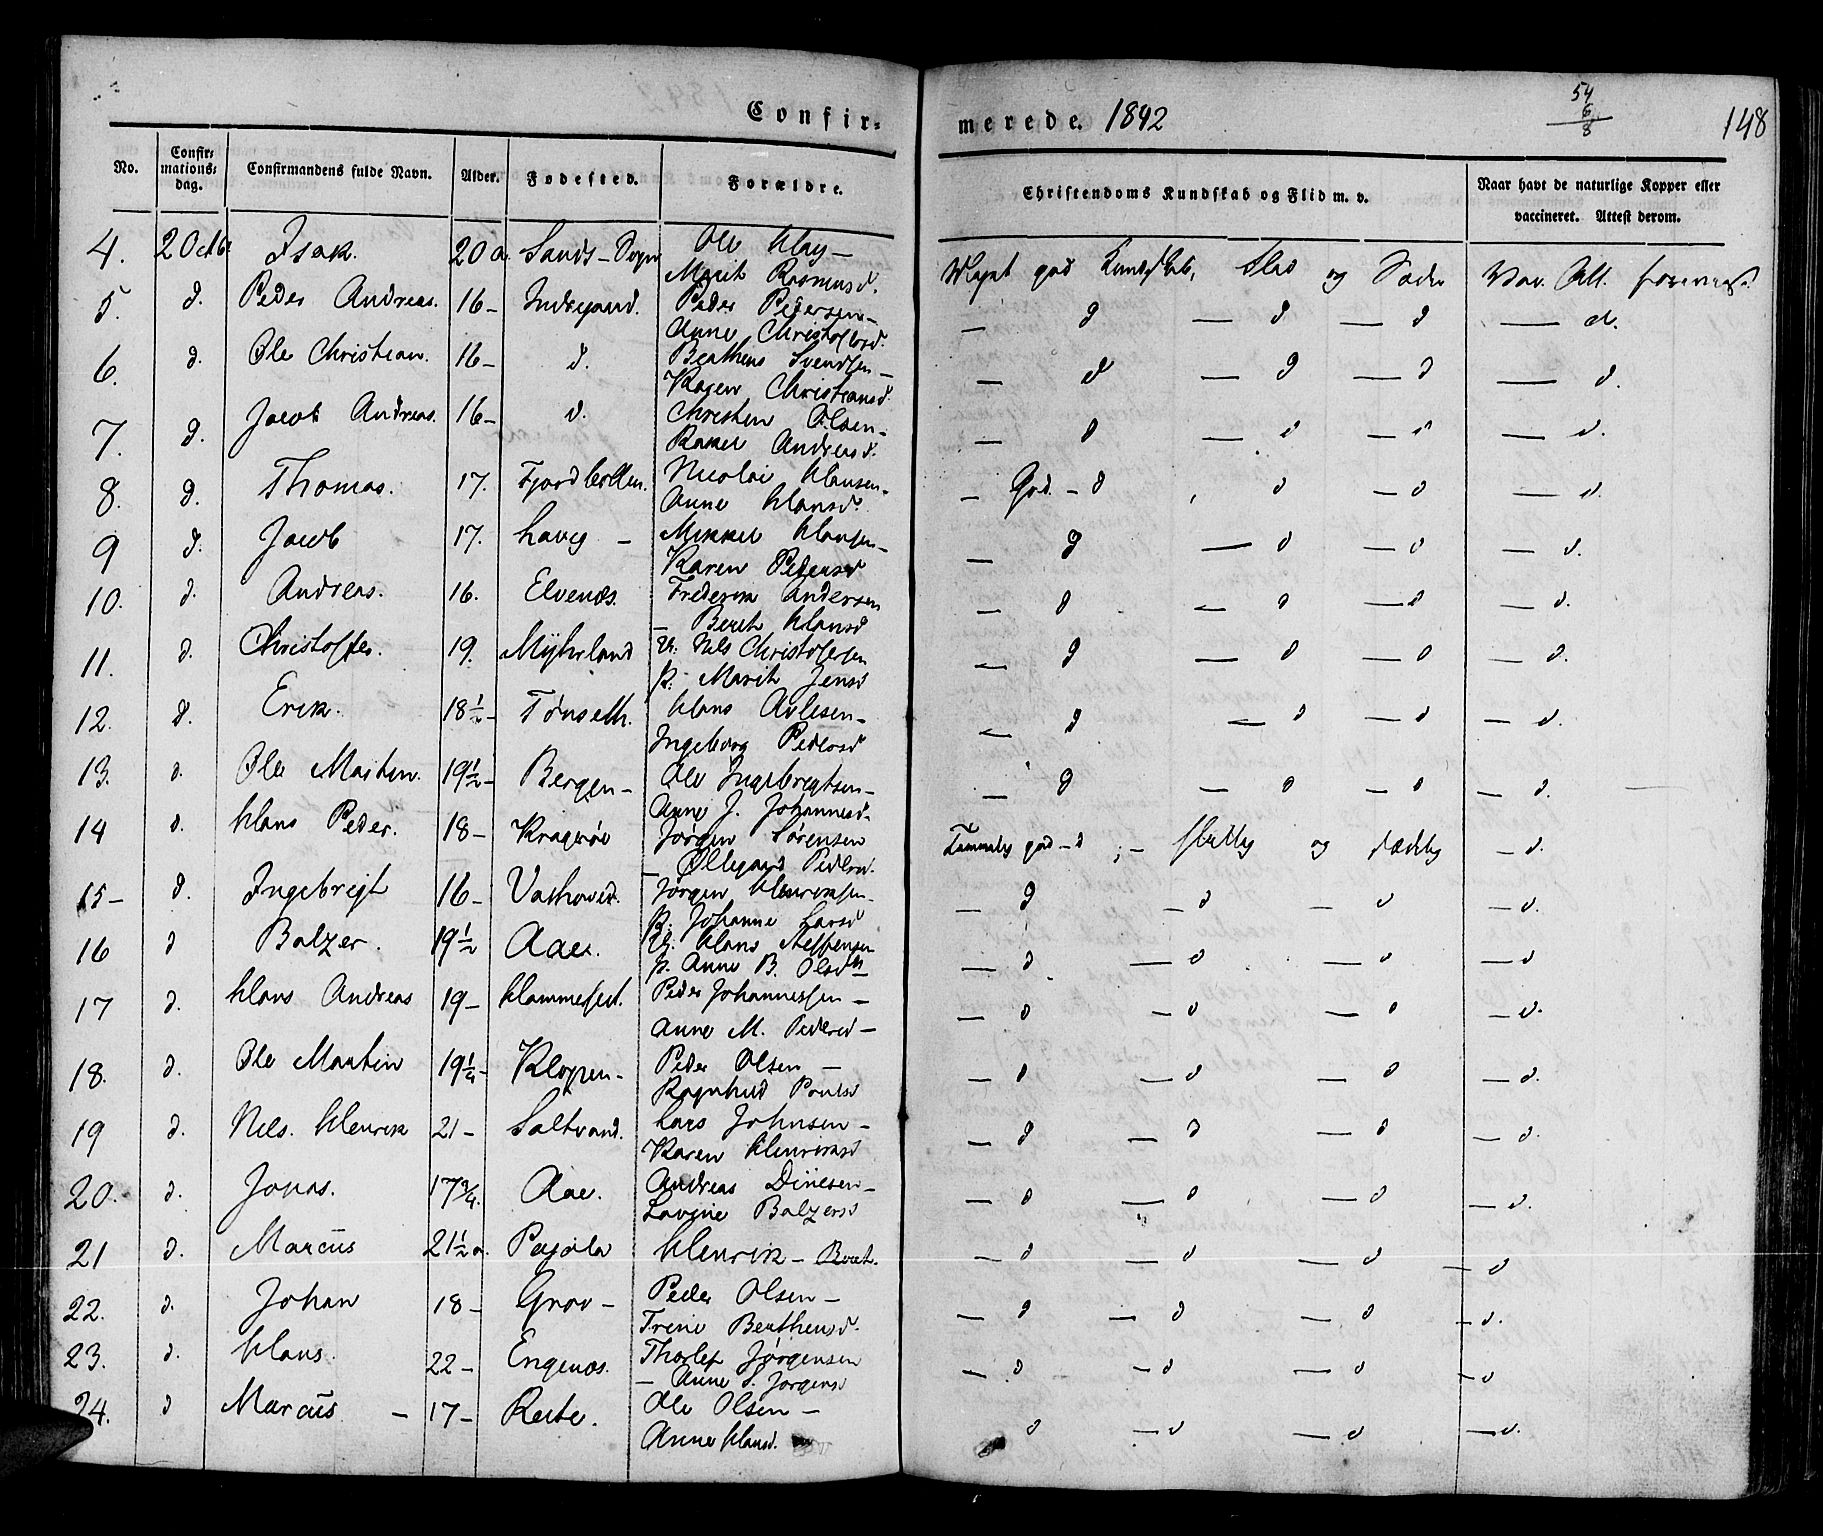 Confir-
merede. 1842
54
6
8
148
No.
Confir-
mations-
dag.
Confirmandens fulde Navn.
Alder.
Fødested.
Forældre.
Christendoms Kundskab og Flid m. v.
Naar havt de naturlige Kopper eller
vaccineret. Attest derom.
4. 2 Octb. Isak. 20 a. Sands-Sogn Ole Hans— Marit Rasmusd. Meget god Kundskab, Flid og Sæder Vac. Att. foreviist.
5. d. Peder Andreas. 16— Indregaard. Peder Pedersen— Anne Christofersd. — d — d — d — d.
6. d. Ole Christian. 16— d. Berthens Svendsen— Karen Christiansd. — d — d — d — d.
7. d. Jacob Andreas. 16— d. Christen Olsen— Rakel Andreasd. — d — d — d — d.
8. d. Thomas. 17. Fjordbotten. Nicolai Hansen— Anne Hansd. — God — d , d — d — d.
9 d. Jacob 17. Havig — Mikkel Hansen— Karen Pedersd — d — d — d — d.
10. d. Andreas. 16. Elvenæs. Frederik Andersen — Beret Hansd — d — d — d — d.
11. d. Christoffer. 19. Myhrland U. Nils Christofersen p. Marit Jensd — d — d — d — d.
12. d. Erik. 18 1/2— Tønseth. Hans Avlesen— Ingeborg Pedersd — d — d — d — d.
13. d. Ole Morten. 19 1/2— Bergen— Ole Ingebrigtsen— Anne J. Johannesd. — d — d — d — d.
14 d. Hans Peder. 18— Kragerøe Jørgen Sørensen — Øllegaard Pedersd. Temmelig god — d ; — flittig og sædelig — d.
15— d. Ingebrigt 16— Vashoved. Jørgen Henriksen— p. Johanne Larsd — d — d — d — d.
16 d Balzer. 19 1/2 Aae. U. Hans Steffensen p. Anne B. Olsd — d — d — d — d
17 d. Hans Andreas 19— Hammerfest. Peder Johannessen— Anne M. Pedersd— — d — d — d — d.
18. d. Ole Martin 19 1/4— Klopen— Peder Olsen— Ragnhild Paulsd — d — d — d — d.
19 d. Nils. Henrik 21— Saltvand. Lars Johnsen— Karen Henriksd — d — d — d — d.
20. d. Jonas. 17 3/4. Aae. Andreas Dinesen— Lavine Balzersd — d — d — d — d.
21 d. Marcus 21 1/2 a. Pajala Henrik — Beret. — d — d — d — d
22. d. Johan 18— Grov— Peder Olsen— Trene Berthensd. — d — d — d — d.
23. d. Hans. 22— Engenæs. Thorlef Jørgensen — Anne S. Jørgensd — d — d — d — d
24. d Marcus — 17— Rette. Ole Olsen— Anne Hansd. — d — d — d — d.